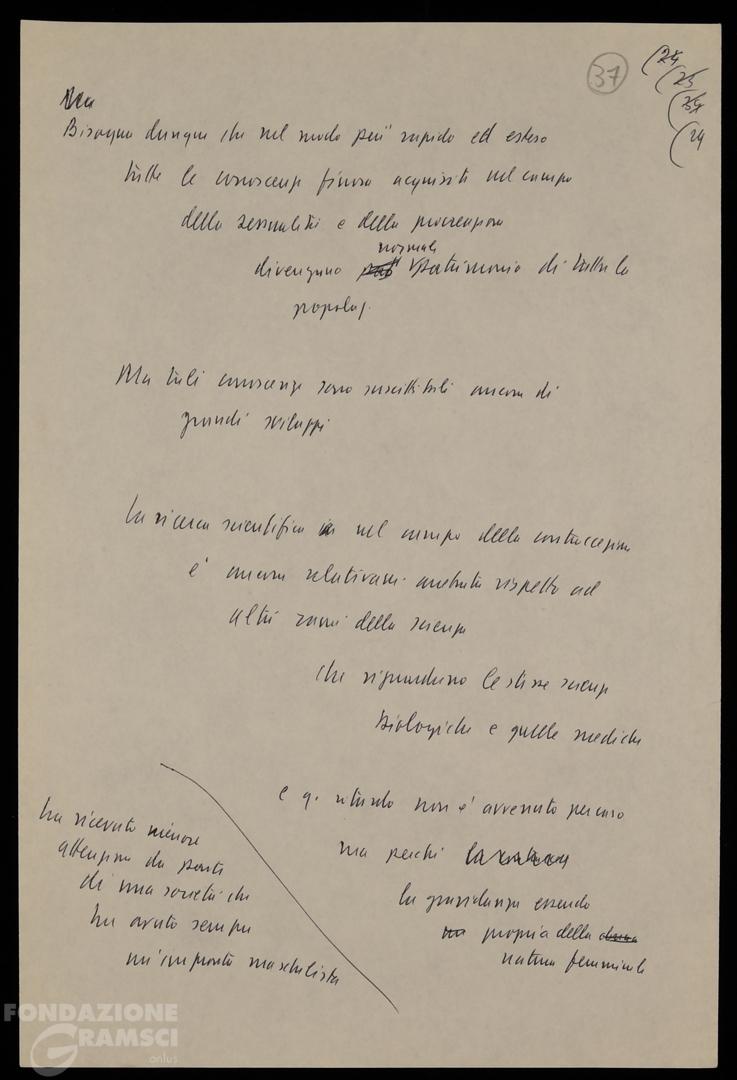 37
(24
(25
(25
(24
Ma
Bisogna dunque che nel modo più rapido ed esteso
tutte le conoscenze finora acquisite nel campo
della sessualità e della procreazione
normale
divengano patrimonio di tutta la
popolaz.
Ma tali conoscenze sono suscettibili ancora di
grandi sviluppi
La ricerca scientifica nel campo della contraccezione
è ancora relativam. arretrata rispetto ad
altri rami della scienza
che riguardano le stesse scienze
biologiche e quelle mediche
e q. ritardo non è avvenuto per caso
ma perché
la gravidanza essendo
propria della
natura femminile
ha ricevuto minore
attenzione da parte
di una società che
ha avuto sempre
un'impronta maschilista
FONDAZIONE
GRAMSCI
onlus